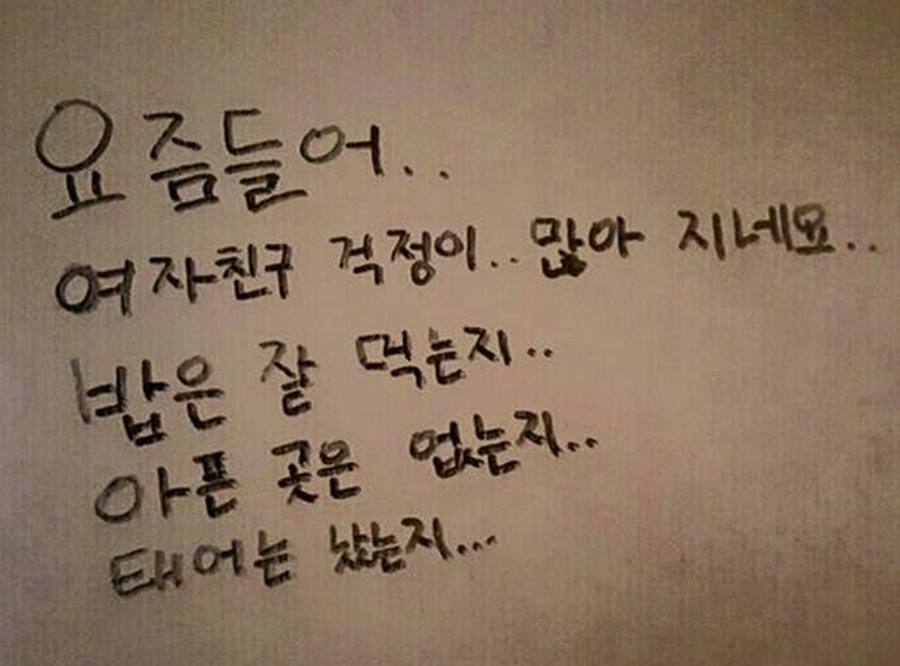 요즘들어..
여자친구 걱정이.. 많아 지네요..
밥은 잘 먹는지..
아픈 곳은 없는지..
태어는 났는지...